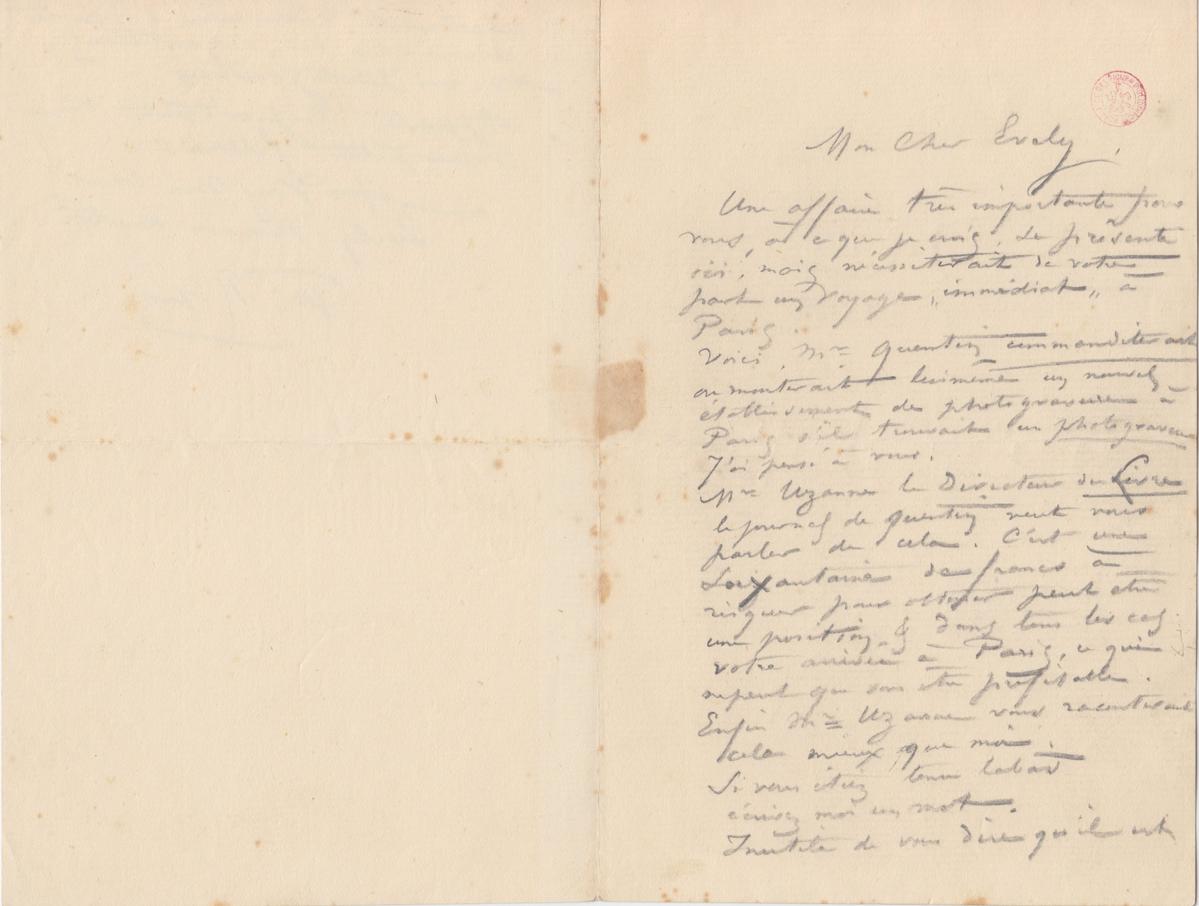 Mon Cher Evely,
Une affaire très importante pour
vous, à ce que je crois, se présente
ici, mais nécessiterait de votre
part un voyage „immédiat„ à
Paris.
Voici, Mr Quentin commanditerait
ou monterait luimême un nouvel
établissement de photogravure à
Paris s'il trouvait un photograveur
J'ai pensé à vous.
Mr Uzanne le Directeur du Livre
le journal de Quentin veut vous
parler de cela. C'est une
Soixantaine de francs à
risquer pour obtenir peut être
une position & dans tous les cas
votre arrivée à Paris, ce qui
nepeut que vous être profitable.
Enfin Mr Uzanne vous raconterait
cela mieux que moi.
Si vous étiez tenu labas
écrivez moi un mot.
Inutile de vous dire qu'il est